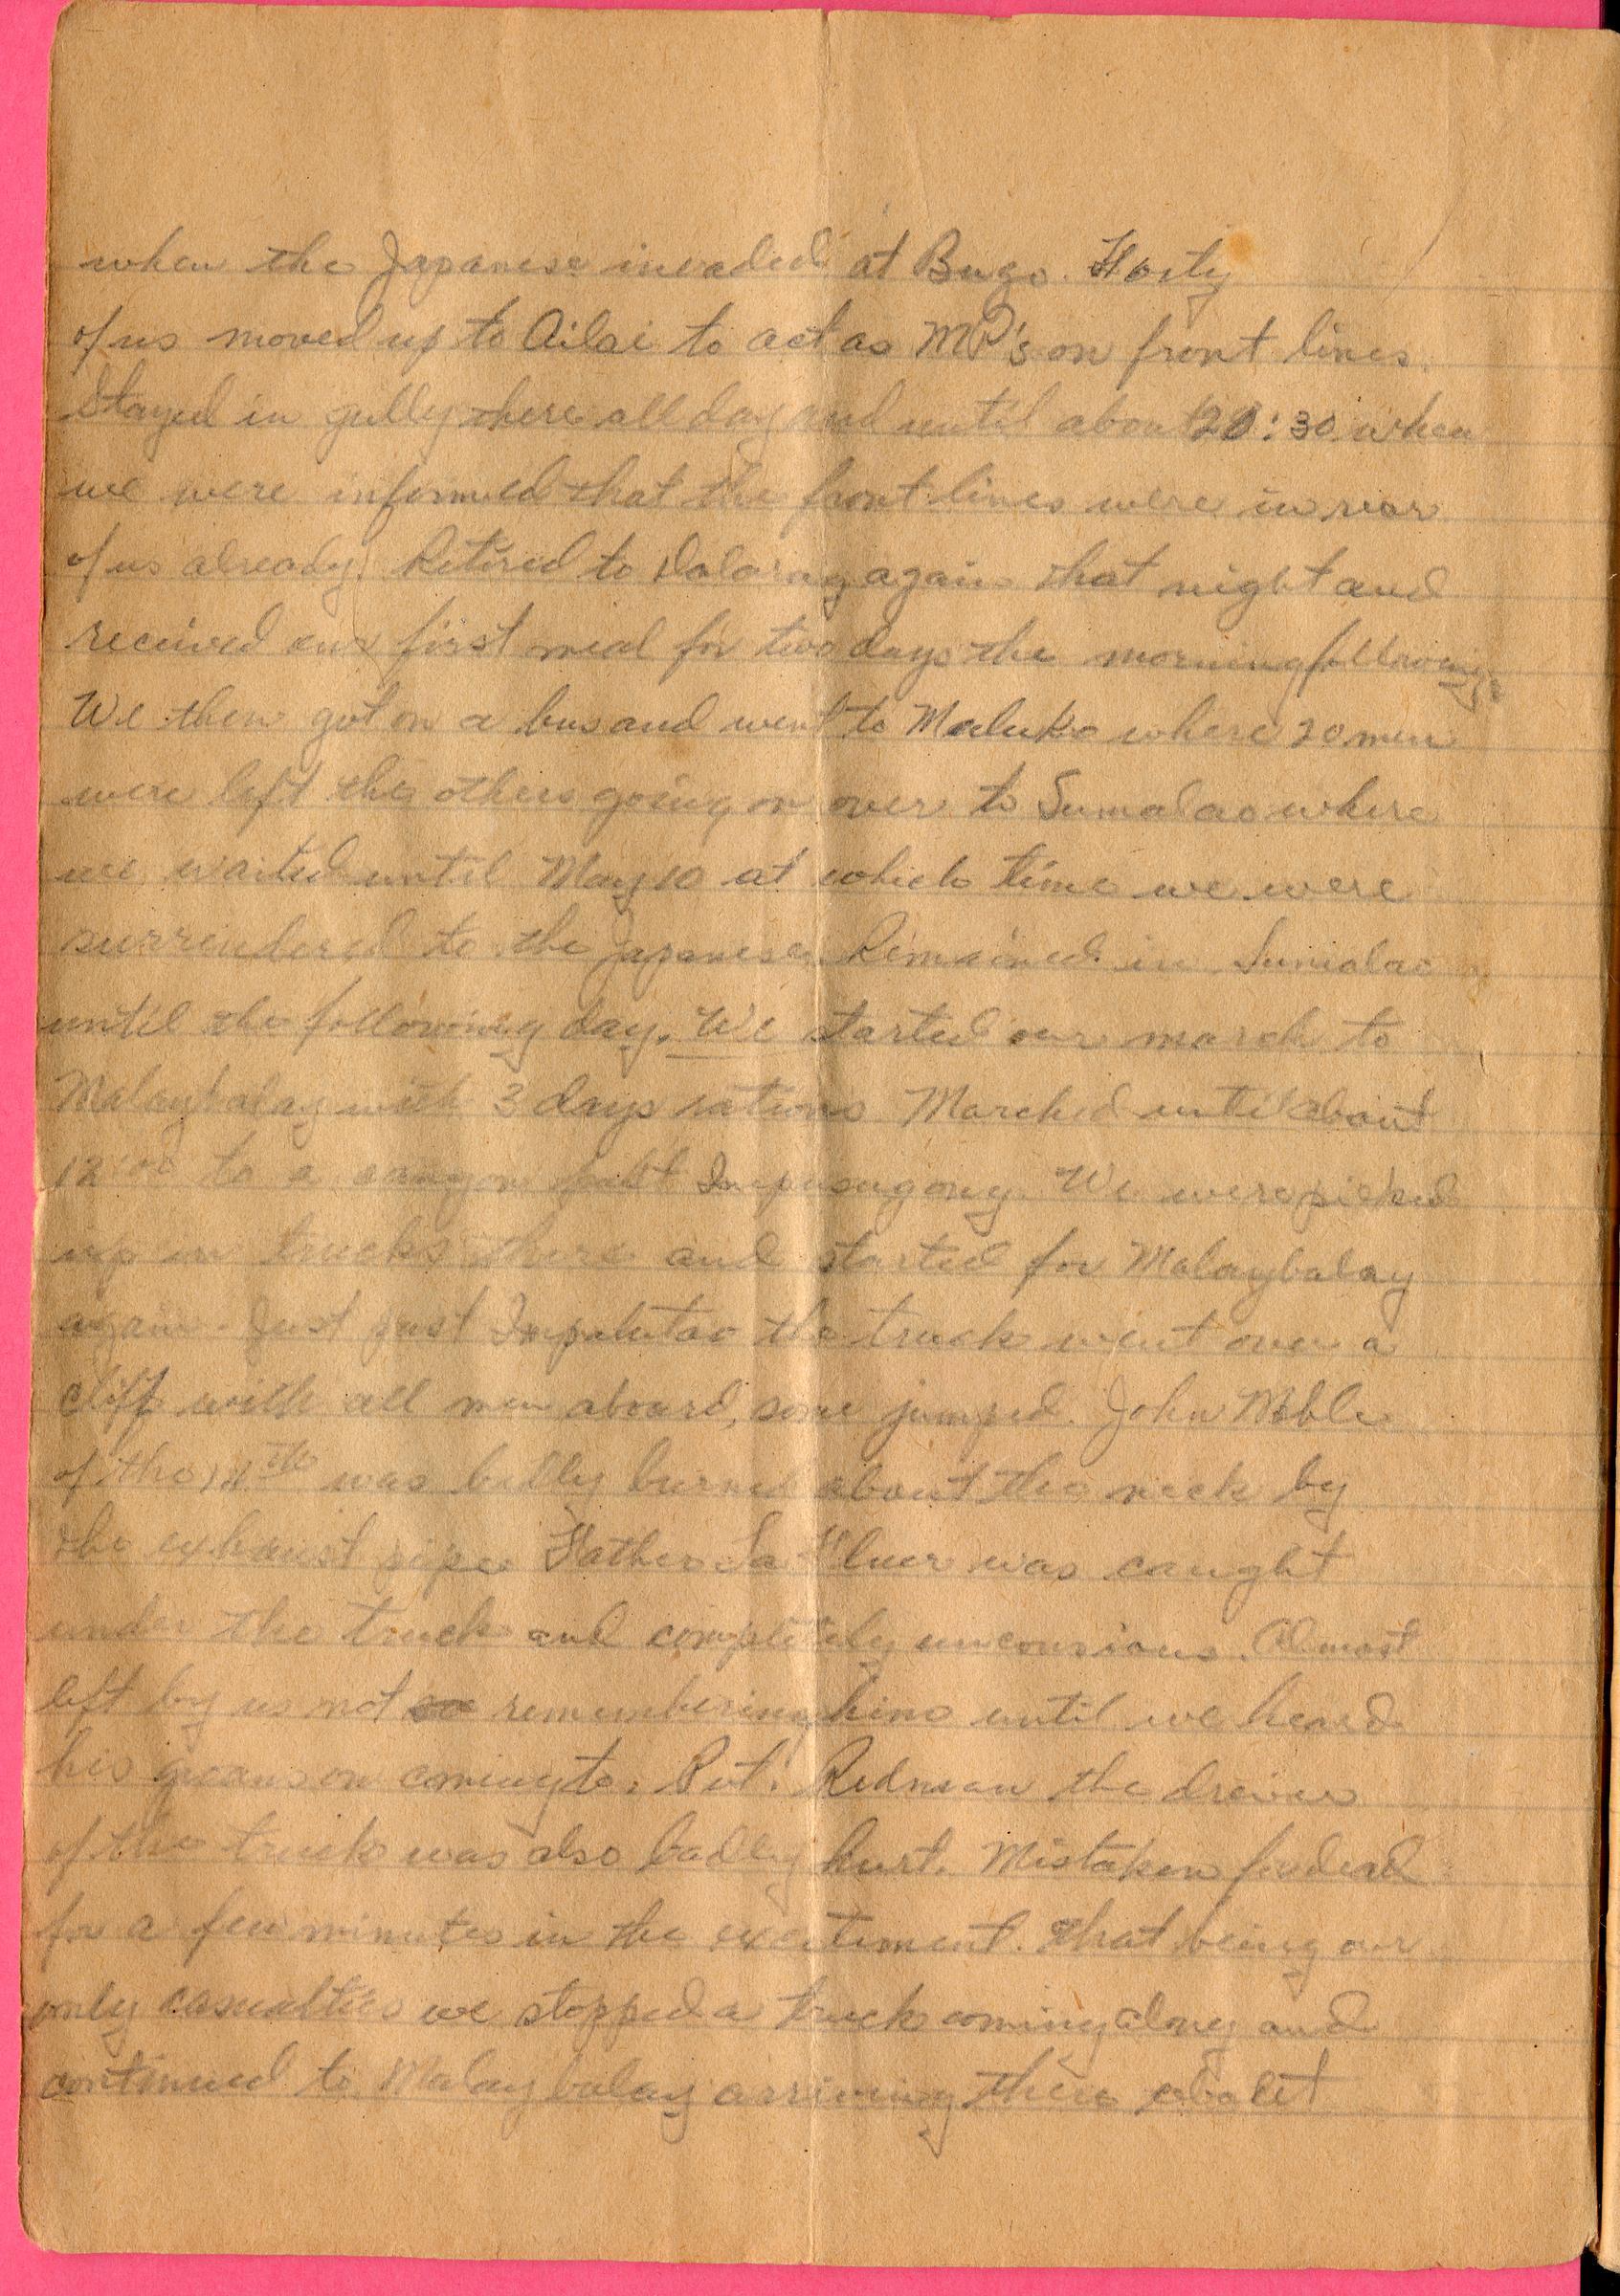 when the Japanese invaded at Bugo. Forty
of us moved up to Ailai to act as MP's on front lines.
Stayed in gully there all day and until about 20:30 when
we were informed that the front lines were in rear
of us already. Retired to Dalarag again that night and
received our first meal for two days the morning following.
We then got on a bus and went to Maluko where 20 men
were left the others going on over to Sumalao where
we waited until May 10 at which time we were
surrendered to the Japanese. Remained in Sumalao
until the following day. We started our march to
Malaybalay with 3 days rations March d until about
12:00 to a canyon past Impasugong. We were picked
up in trucks there and started for Malaybalay
again. Just past Impalutao the truck went over a
cliff with all men aboard, some jumped. John Moble
of the 14th was badly burned about the neck by
the exhaust pipe Father La Fluer was caught
under the truck and completely unconsious. Almost
left by us not remembering him until we heard
his groans on coming to. Pvt. Rednean the driver
of the truck was also badly hurt. Mistaken for dead
for a few minutes in the excitement. That being our
only casualties we stopped a truck coming along and
continued to Malaybalay arriving there about